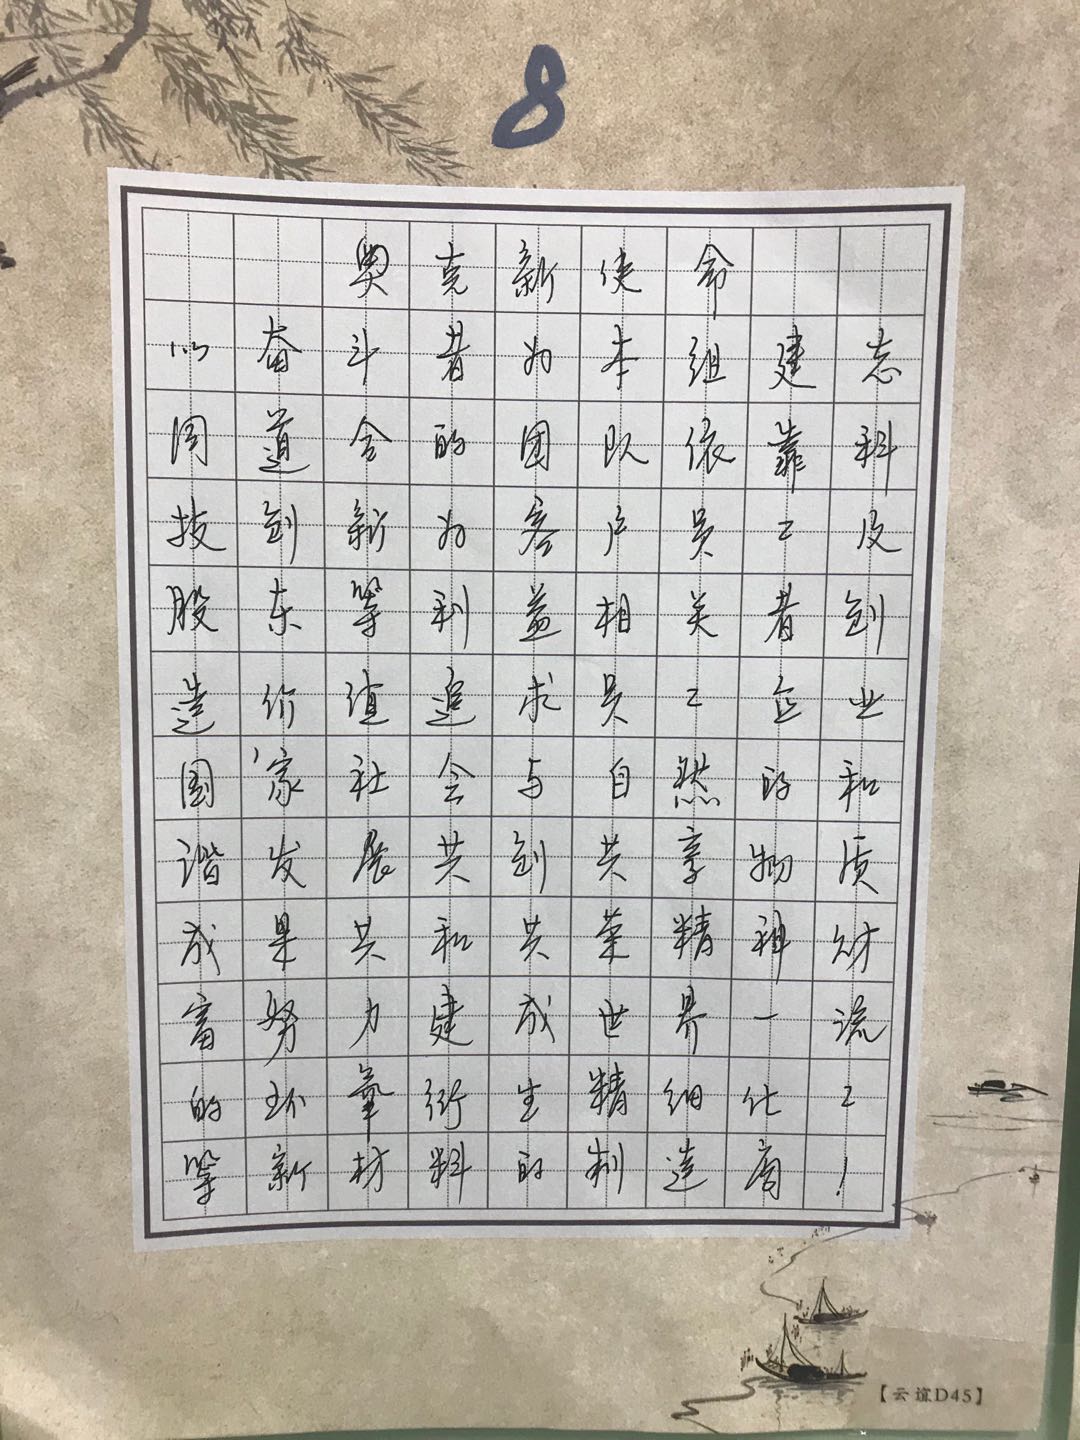 8
奥克新使命
以奋斗者为本组建志
同道合的团队依靠科
技创新为客户员工及
股东等利益相关者创
造价值追求员工企业
国家社会与自然的和
谐发展共创共享物质
成果共和共荣精神财
富努力建成世界一流
的环氧衍生精细化工
等新材料的制造商！
【云谊D45】